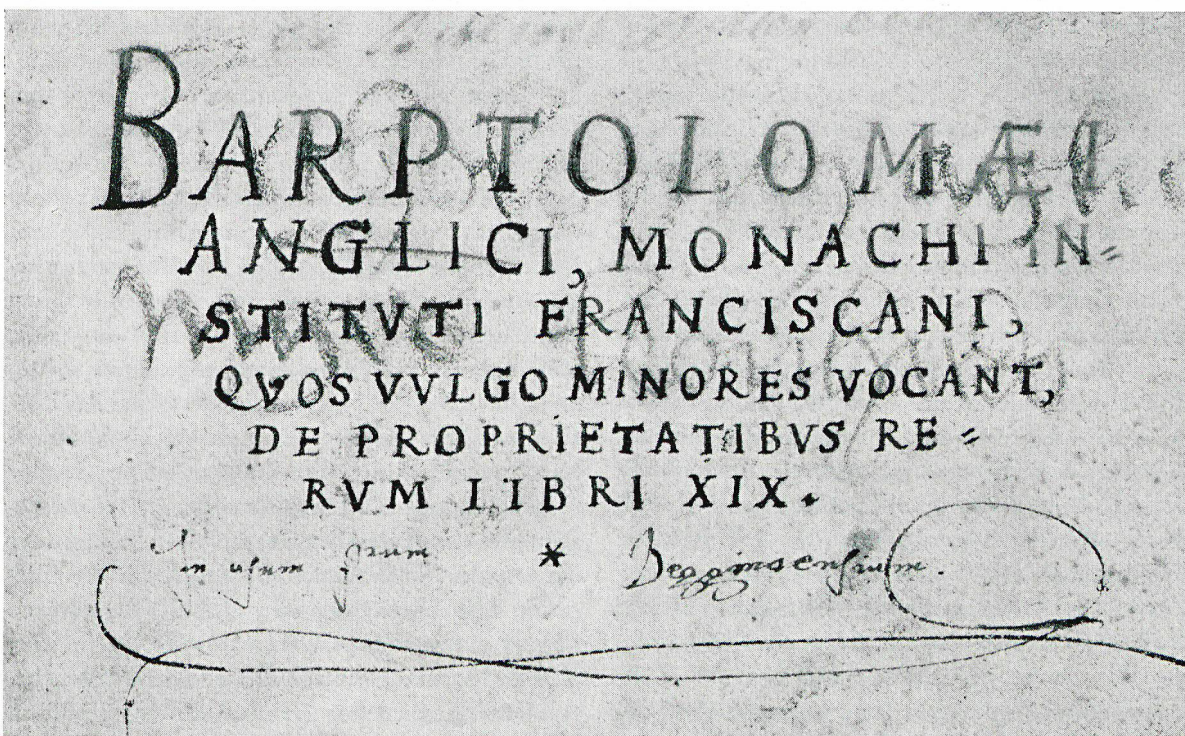 BARPTOLOMÆI
ANGLICI, MONACHI IN=
STITVTI FRANCISCANI,
QVOS VVLGO MINORES VOCANT,
DE PROPRIETATIBVS RE=
RVM LIBRI XIX.
in usum *